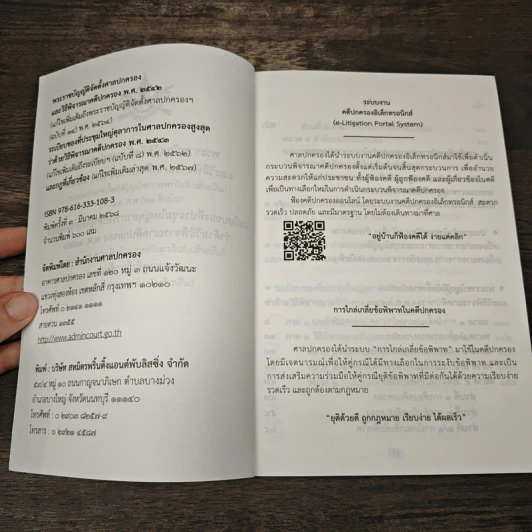 พระราชบัญญัติจัดตั้งศาลปกครอง
และวิธีพิจารณาคดีปกครอง พ.ศ. ๒๕๔๒
(แก้ไขเพิ่มเติมถึงพระราชบัญญัติจัดตั้งศาลปกครองฯ
พ.ศ. ๒๕๖๔)
ระเบียบของที่ประชุมใหญ่ตุลาการในศาลปกครองสูงสุด
ว่าด้วยวิธีพิจารณาคดีปกครอง พ.ศ. ๒๕๔๓
(แก้ไขเพิ่มเติมถึงระเบียบฯ
และกฎที่เกี่ยวข้อง (แก้ไขเพิ่มเติมล่าสุด พ.ศ. ๒๕๖๗)
ISBN 978-616-333-108-3
พิมพ์ครั้งที่ ๓ : มีนาคม ๒๕๖๘
จำนวนพิมพ์ ๖๐๐ เล่ม
จัดพิมพ์โดย : สำนักงานศาลปกครอง
อาคารศาลปกครอง เลขที่ ๑๒๐ หมู่ ๓ ถนนแจ้งวัฒนะ
แขวงทุ่งสองห้อง เขตหลักสี่ กรุงเทพฯ ๑๐๒๑๐
โทรศัพท์ ๐ ๒๑๔๑ ๑๑๑๑
สายด่วน ๑๓๕๕
http://www.admincourt.go.th
พิมพ์ : บริษัท สหมิตรพริ้นติ้งแอนด์พับลิสชิ่ง จำกัด
๕๙/๔ หมู่ ๑๐ ถนนกาญจนาภิเษก ตำบลบางม่วง
อำเภอบางใหญ่ จังหวัดนนทบุรี ๑๑๑๔๐
โทรศัพท์ : ๐ ๒๙๐๓ ๘๒๕๗-๙
โทรสาร : ๐ ๒๙๒๑ ๔๕๘๗
ระบบงาน
คดีปกครองอิเล็กทรอนิกส์
(e-Litigation Portal System)
ศาลปกครองได้นำระบบงานคดีปกครองอิเล็กทรอนิกส์มาใช้เพื่อดำเนิน
กระบวนพิจารณาคดีปกครองตั้งแต่เริ่มต้นจนสิ้นสุดกระบวนการ เพื่ออำนวย
ความสะดวกให้แก่ประชาชน ทั้งผู้ฟ้องคดี ผู้ถูกฟ้องคดี และผู้เกี่ยวข้องในคดี
เพื่อเป็นทางเลือกใหม่ในการดำเนินกระบวนพิจารณาคดีปกครอง
ฟ้องคดีปกครองออนไลน์ โดยระบบงานคดีปกครองอิเล็กทรอนิกส์ สะดวก
รวดเร็ว ปลอดภัย และมีมาตรฐาน โดยไม่ต้องเดินทางมาที่ศาล
"อยู่บ้านก็ฟ้องคดีได้ ง่ายแค่คลิก"
การไกล่เกลี่ยข้อพิพาทในคดีปกครอง
ศาลปกครองได้นำระบบ "การไกล่เกลี่ยข้อพิพาท" มาใช้ในคดีปกครอง
โดยมีเจตนารมณ์เพื่อให้คู่กรณีได้มีทางเลือกในการระงับข้อพิพาท และเป็น
การส่งเสริมความร่วมมือให้คู่กรณียุติข้อพิพาทที่มีต่อกันได้ด้วยความเรียบง่าย
รวดเร็ว และถูกต้องตามกฎหมาย
"ยุติด้วยดี ถูกกฎหมาย เรียบง่าย ได้ผลเร็ว"